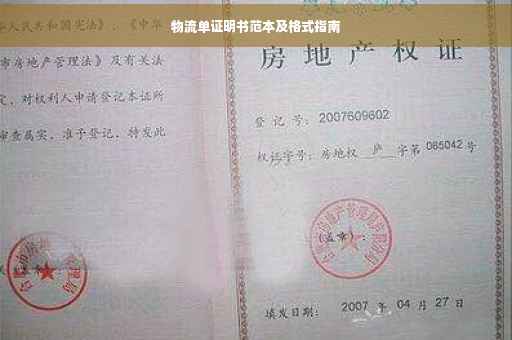 物流单证明书范本及格式指南
人民共和国宪法》、《中华
市房地产管理法》及有关法
定，对权利人申请登记本证所
审查属实，准予登记，特发此
房地产权证
登记号：2007609602
权证字号：房地权 庐 字第 085042 号
(盖章)：
填发日期： 2007 年 04 月 27 日